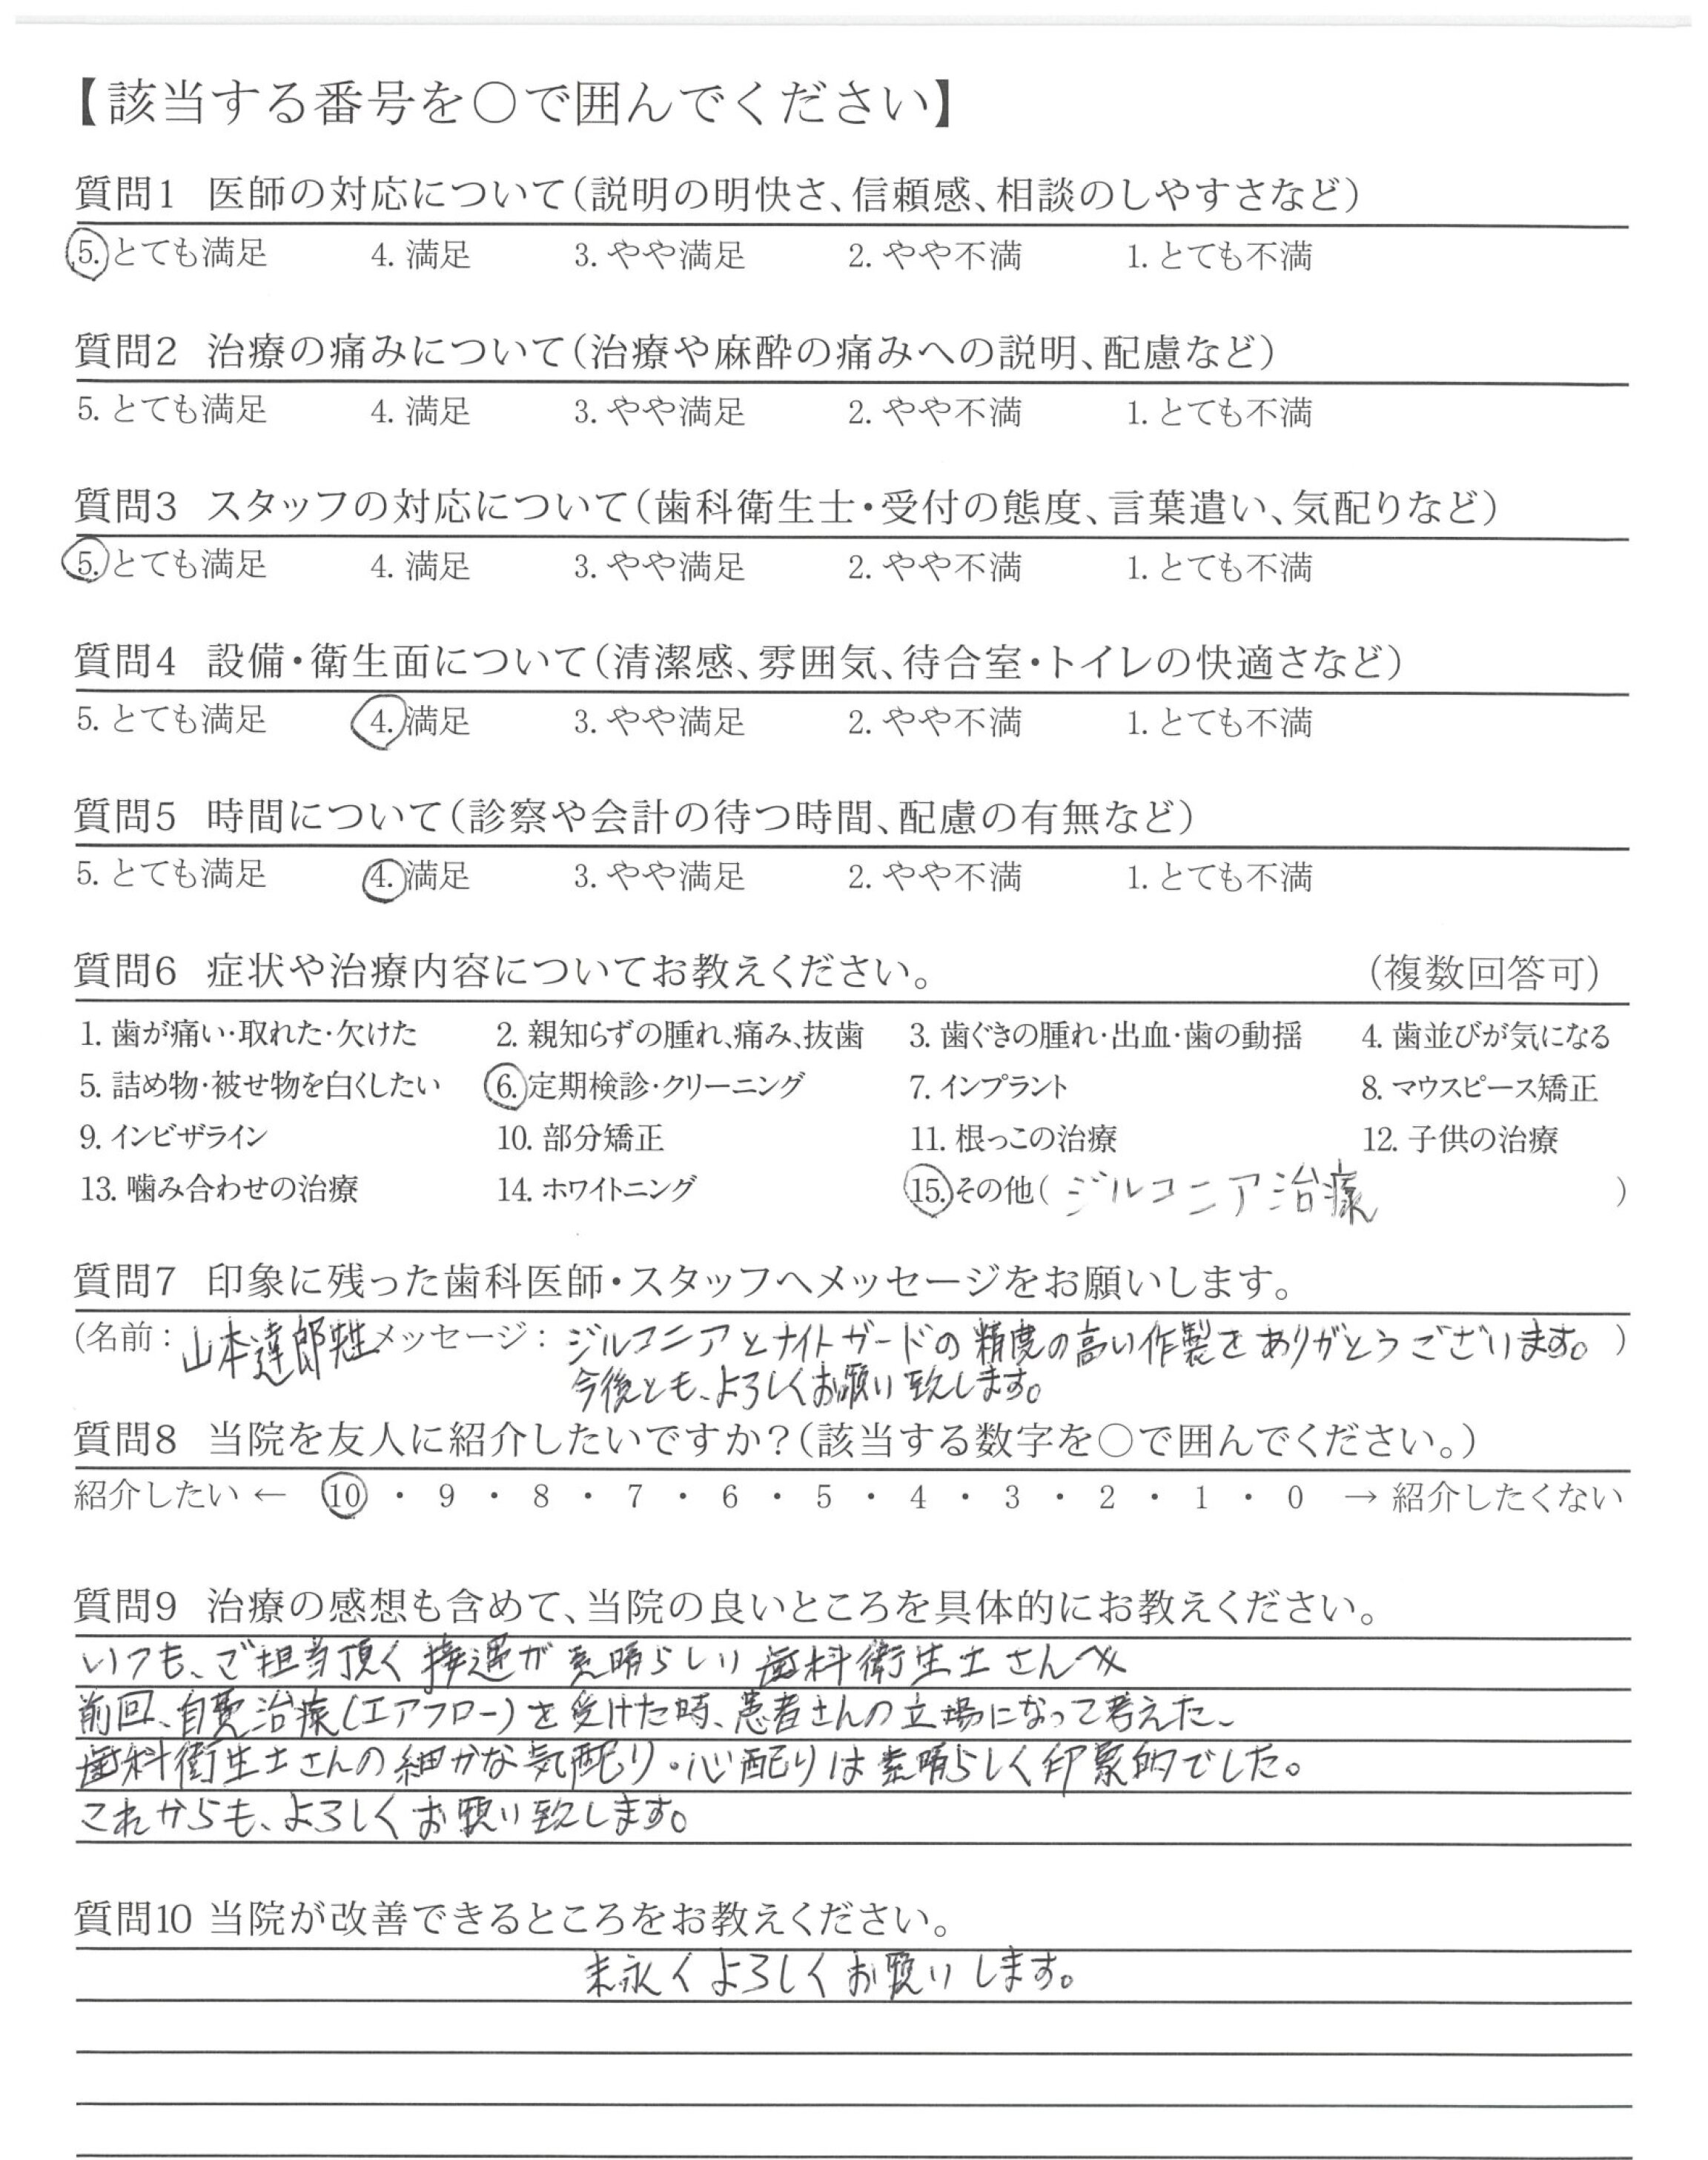 【該当する番号を○で囲んでください】
質問1 医師の対応について(説明の明快さ、信頼感、相談のしやすさなど)
5. とても満足 4. 満足 3. やや満足 2. やや不満 1. とても不満
質問2 治療の痛みについて(治療や麻酔の痛みへの説明、配慮など)
5. とても満足 4. 満足 3. やや満足 2. やや不満 1. とても不満
質問3 スタッフの対応について(歯科衛生士・受付の態度、言葉遣い、気配りなど)
5. とても満足 4. 満足 3. やや満足 2. やや不満 1. とても不満
質問4 設備・衛生面について(清潔感、雰囲気、待合室・トイレの快適さなど)
5. とても満足 4. 満足 3. やや満足 2. やや不満 1. とても不満
質問5 時間について(診察や会計の待つ時間、配慮の有無など)
5. とても満足 4. 満足 3. やや満足 2. やや不満 1. とても不満
質問6 症状や治療内容についてお教えください。 (複数回答可)
1. 歯が痛い・取れた・欠けた 2. 親知らずの腫れ、痛み、抜歯 3. 歯ぐきの腫れ・出血・歯の動揺 4. 歯並びが気になる
5. 詰め物・被せ物を白くしたい 6. 定期検診・クリーニング 7. インプラント 8. マウスピース矯正
9. インビザライン 10. 部分矯正 11. 根っこの治療 12. 子供の治療
13. 噛み合わせの治療 14. ホワイトニング 15. その他( ジルコニア治療 )
質問7 印象に残った歯科医師・スタッフへメッセージをお願いします。
(名前: 山本達郎先生 メッセージ: ジルコニアとナイトガードの精度の高い作製をありがとうございます。)
今後とも、よろしくお願い致します。
質問8 当院を友人に紹介したいですか?(該当する数字を○で囲んでください。)
紹介したい ← 10 ・ 9 ・ 8 ・ 7 ・ 6 ・ 5 ・ 4 ・ 3 ・ 2 ・ 1 ・ 0 → 紹介したくない
質問9 治療の感想も含めて、当院の良いところを具体的にお教えください。
いつも、ご担当頂く接遇が素晴らしい歯科衛生士さんへ
前回、自費治療(エアフロー)を受けた時、患者さんの立場になって考えた、
歯科衛生士さんの細かな気配り・心配りは素晴らしく印象的でした。
これからも、よろしくお願い致します。
質問10 当院が改善できるところをお教えください。
末永くよろしくお願いします。